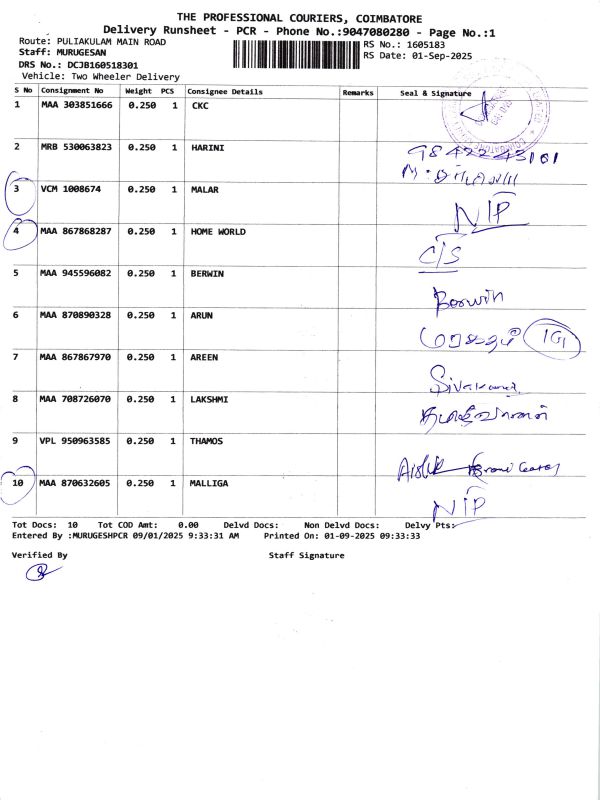 THE PROFESSIONAL COURIERS, COIMBATORE
Delivery Runsheet - PCR - Phone No.:9047080280 - Page No.:1
Route: PULIAKULAM MAIN ROAD
RS No.: 1605183
Staff: MURUGESAN
RS Date: 01-Sep-2025
DRS No.: DCJB160518301
Vehicle: Two Wheeler Delivery
S No Consignment No Weight PCS Consignee Details Remarks Seal & Signature
1 MAA 303851666 0.250 1 CKC
2 MRB 530063823 0.250 1 HARINI 9842243101
3 VCM 1008674 0.250 1 MALAR N/P
4 MAA 867868287 0.250 1 HOME WORLD C/S
5 MAA 945596082 0.250 1 BERWIN Berwin
6 MAA 870890328 0.250 1 ARUN
7 MAA 867867970 0.250 1 AREEN
8 MAA 708726070 0.250 1 LAKSHMI
9 VPL 950963585 0.250 1 THAMOS
10 MAA 870632605 0.250 1 MALLIGA N/P
Tot Docs: 10 Tot COD Amt: 0.00 Delvd Docs: Non Delvd Docs: Delvy Pts:
Entered By :MURUGESHPCR 09/01/2025 9:33:31 AM Printed On: 01-09-2025 09:33:33
Verified By Staff Signature